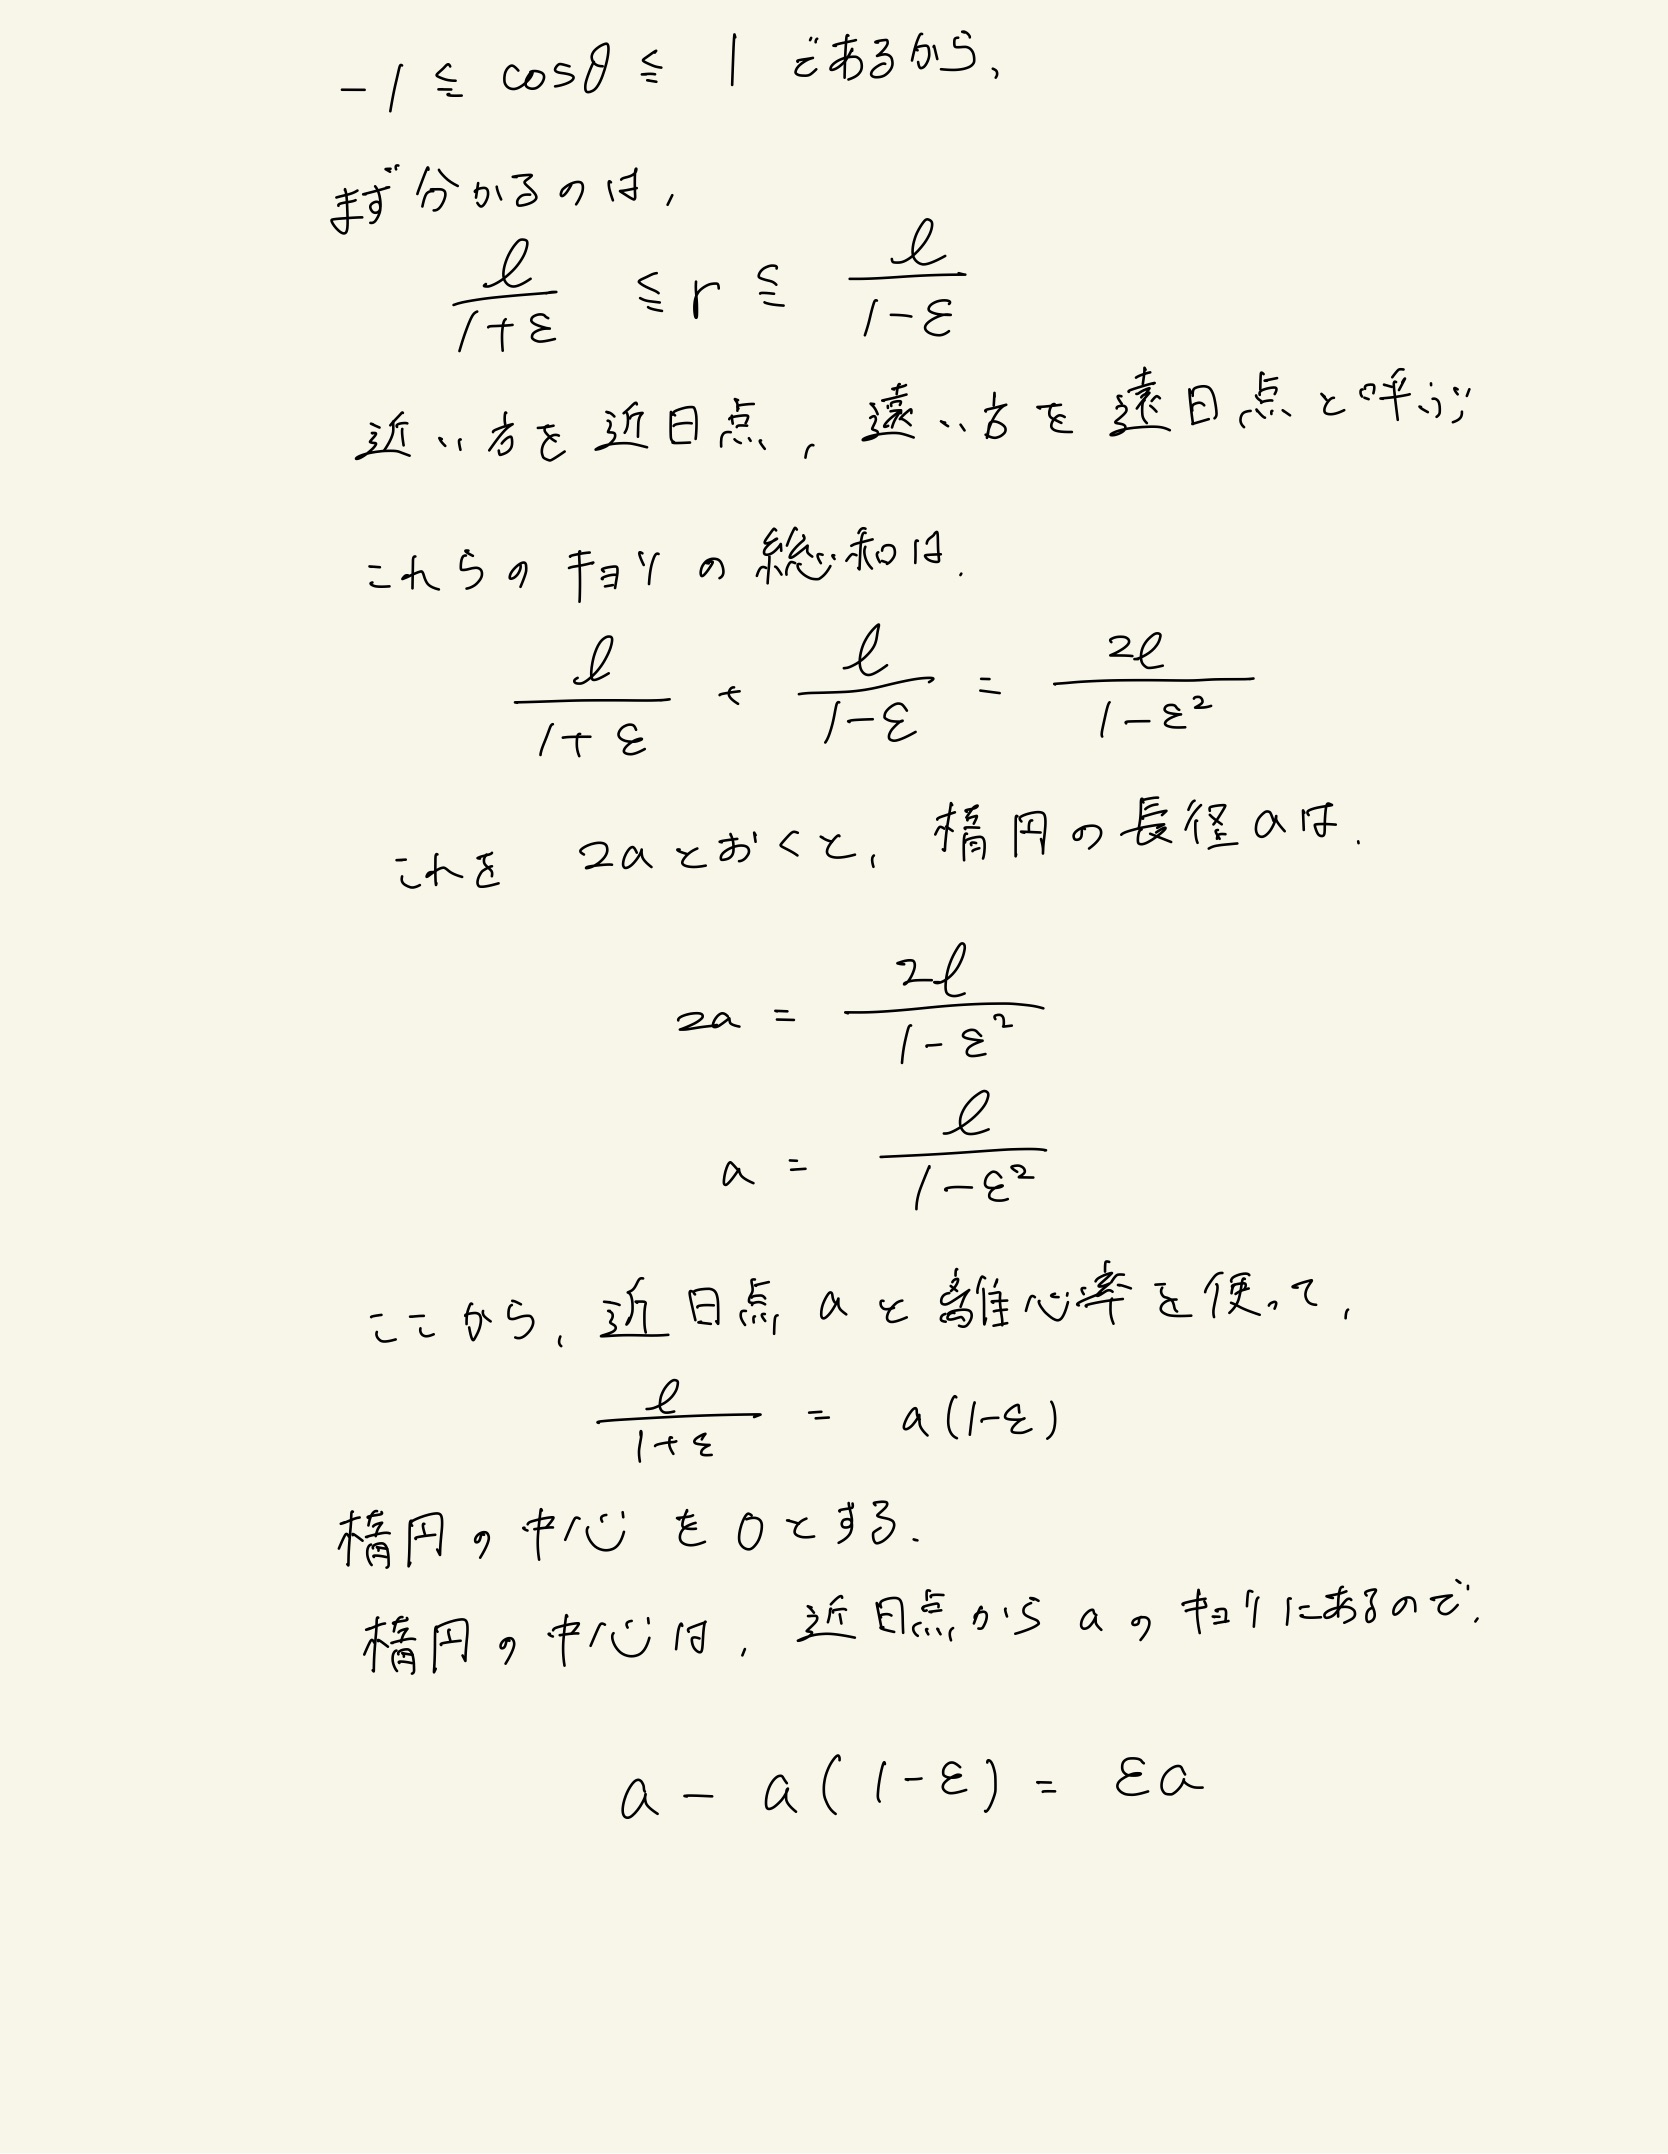 -1 ≦ cosθ ≦ 1 であるから、
まず分かるのは,
l/(1+ε) ≦ r ≦ l/(1-ε)
近い方を近日点, 遠い方を遠日点と呼ぶ
これらのキョリの総和は.
l/(1+ε) + l/(1-ε) = 2l/(1-ε²)
これを 2aとおくと, 楕円の長径aは.
2a = 2l/(1-ε²)
a = l/(1-ε²)
ここから, 近日点 aと離心率を使って,
l/(1+ε) = a(1-ε)
楕円の中心を0とする.
楕円の中心は, 近日点から aのキョリにあるので.
a - a(1-ε) = εa